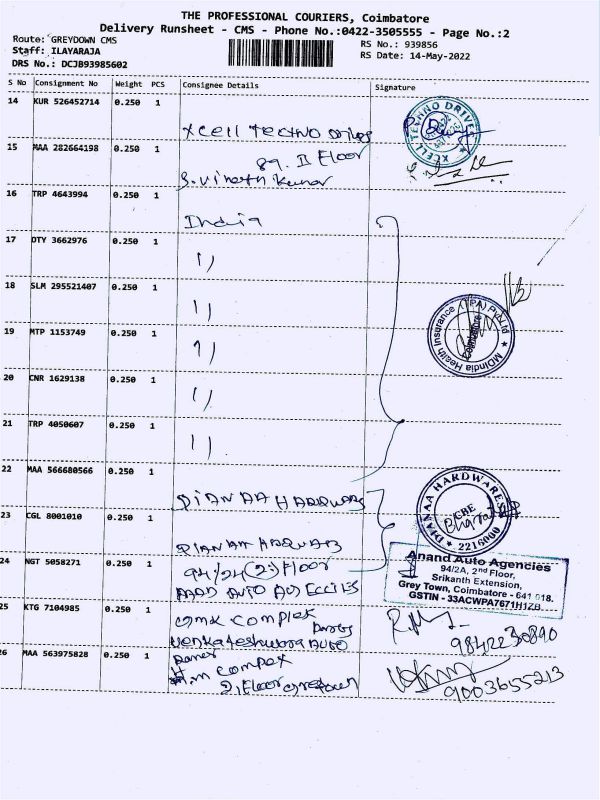 THE PROFESSIONAL COURIERS, Coimbatore
Delivery Runsheet - CMS - Phone No.:0422-3505555 - Page No.:2
Route: GREYDOWN CMS
Staff: ILAYARAJA
DRS No.: DCJB93985602
RS No.: 939856
RS Date: 14-May-2022
S No Consignment No Weight PCS Consignee Details Signature
14 KUR 526452714 0.250 1
Xcell Techno Drives
15 MAA 282664198 0.250 1
89. II Floor
S. Vinoth Kumar
16 TRP 4643994 0.250 1
India
17 DTY 3662976 0.250 1
11
18 SLM 295521407 0.250 1
11
19 MTP 1153749 0.250 1
11
20 CNR 1629138 0.250 1
11
21 TRP 4050607 0.250 1
11
22 MAA 566680566 0.250 1
DIANAA HARDWARES
23 CGL 8001010 0.250 1
24 NGT 5058271 0.250 1
94/2A (2) Floor
25 KTG 7104985 0.250 1
GMK Complex
Venkateshwara AUTO
26 MAA 563975828 0.250 1
2, Floor
XCELL TECHNO DRIVES
MDIndia Health Insurance (TPA) Pvt. Ltd
Coimbatore
DIANAA HARDWARES
CBE
2216000
Anand Auto Agencies
94/2A, 2nd Floor,
Srikanth Extension,
Grey Town, Coimbatore - 641 018.
GSTIN - 33ACWPA7671H1ZB
9842230890
9003655213